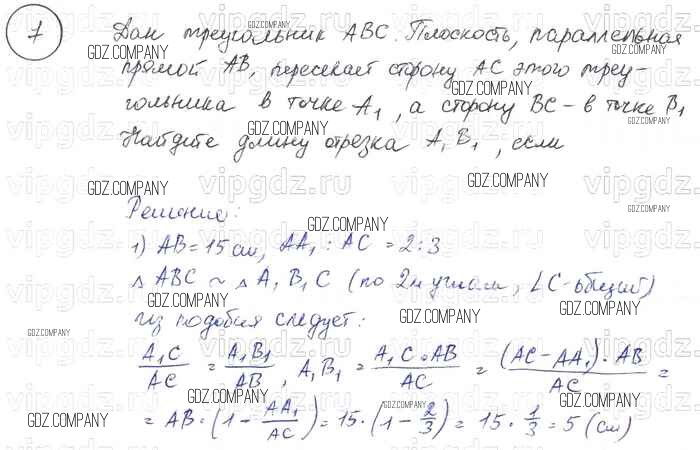 7 Дан треугольник ABC. Плоскость, параллельная
прямой AB, пересекает сторону AC этого треу-
гольника в точке A₁, а сторону BC - в точке B₁
Найдите длину отрезка A₁B₁, если
Решение:
1) AB = 15 см, AA₁ : AC = 2:3
△ ABC ~ △ A₁B₁C (по 2м углам, ∠C - общий)
из подобия следует:
A₁C/AC = A₁B₁/AB, A₁B₁ = A₁C · AB/AC = (AC - AA₁) · AB/AC =
= AB · (1 - AA₁/AC) = 15 · (1 - 2/3) = 15 · 1/3 = 5 (см)
vipgdz.ru
GDZ.COMPANY